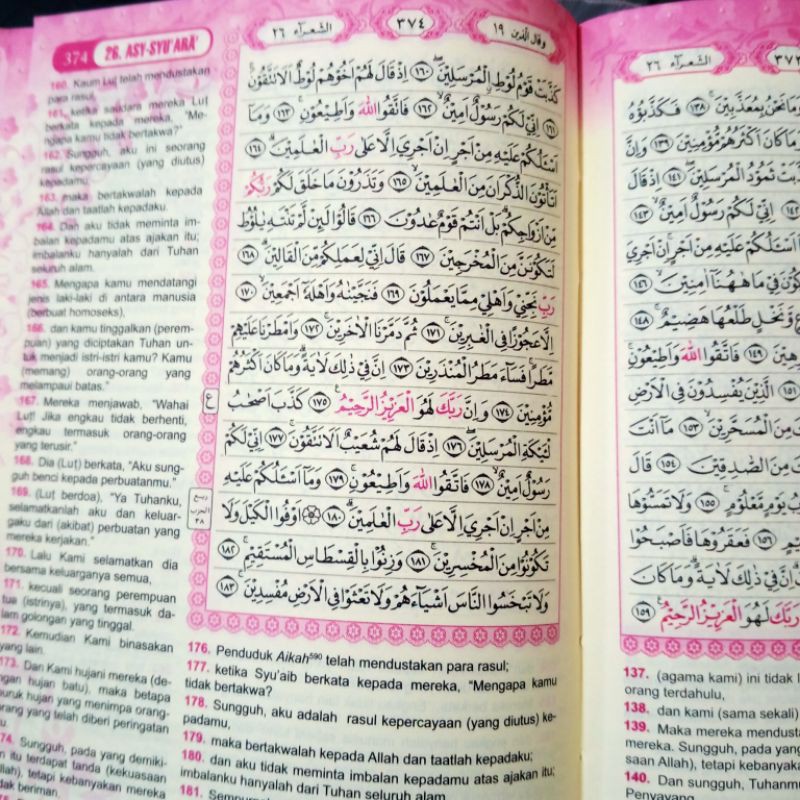 374
26. ASY-SYU'ARĀ'
الشعرآء ٢٦
٣٧٤
وقال الذين ١٩
160. Kaum Lut telah mendustakan
para rasul,
161. ketika saudara mereka Luṭ
berkata kepada mereka, "Me-
ngapa kamu tidak bertakwa?"
162. Sungguh, aku ini seorang
rasul kepercayaan (yang diutus)
kepadamu,
163. maka bertakwalah kepada
Allah dan taatlah kepadaku.
164. Dan aku tidak meminta im-
balan kepadamu atas ajakan itu;
imbalanku hanyalah dari Tuhan
seluruh alam.
165. Mengapa kamu mendatangi
jenis laki-laki di antara manusia
(berbuat homoseks),
166. dan kamu tinggalkan (perem-
puan) yang diciptakan Tuhan un-
tuk menjadi istri-istri kamu? Kamu
(memang) orang-orang yang
melampaui batas."
167. Mereka menjawab, "Wahai
Luṭ! Jika engkau tidak berhenti,
engkau termasuk orang-orang
yang terusir."
168. Dia (Luṭ) berkata, "Aku sung-
guh benci kepada perbuatanmu."
169. (Luṭ berdoa), "Ya Tuhanku,
selamatkanlah aku dan keluar-
gaku dari (akibat) perbuatan yang
mereka kerjakan."
170. Lalu Kami selamatkan dia
bersama keluarganya semua,
171. kecuali seorang perempuan
tua (istrinya), yang termasuk da-
lam golongan yang tinggal.
172. Kemudian Kami binasakan
yang lain.
173. Dan Kami hujani mereka (de-
ngan hujan batu), maka betapa
buruk hujan yang menimpa orang-
orang yang telah diberi peringatan
74. Sungguh, pada yang demiki-
n itu terdapat tanda (kekuasaan
llah), tetapi kebanyakan mereka
dak beriman.
كَذَّبَتْ قَوْمُ لُوْطِ ِۨالْمُرْسَلِيْنَ ۖ ١٦٠ اِذْ قَالَ لَهُمْ اَخُوْهُمْ لُوْطٌ اَلَا تَتَّقُوْنَ ۚ
١٦١ اِنِّيْ لَكُمْ رَسُوْلٌ اَمِيْنٌ ۙ ١٦٢ فَاتَّقُوا اللّٰهَ وَاَطِيْعُوْنِ ۚ ١٦٣ وَمَآ
اَسْـَٔلُكُمْ عَلَيْهِ مِنْ اَجْرٍ اِنْ اَجْرِيَ اِلَّا عَلٰى رَبِّ الْعٰلَمِيْنَ ۗ ١٦٤
اَتَأْتُوْنَ الذُّكْرَانَ مِنَ الْعٰلَمِيْنَ ۙ ١٦٥ وَتَذَرُوْنَ مَا خَلَقَ لَكُمْ رَبُّكُمْ
مِّنْ اَزْوَاجِكُمْۗ بَلْ اَنْتُمْ قَوْمٌ عٰدُوْنَ ١٦٦ قَالُوْا لَىِٕنْ لَّمْ تَنْتَهِ يٰلُوْطُ
لَتَكُوْنَنَّ مِنَ الْمُخْرَجِيْنَ ١٦٧ قَالَ اِنِّيْ لِعَمَلِكُمْ مِّنَ الْقَالِيْنَ ۗ ١٦٨
رَبِّ نَجِّنِيْ وَاَهْلِيْ مِمَّا يَعْمَلُوْنَ ١٦٩ فَنَجَّيْنٰهُ وَاَهْلَهٗٓ اَجْمَعِيْنَ ۙ ١٧٠
اِلَّا عَجُوْزًا فِى الْغٰبِرِيْنَ ۚ ١٧١ ثُمَّ دَمَّرْنَا الْاٰخَرِيْنَ ۚ ١٧٢ وَاَمْطَرْنَا عَلَيْهِمْ
مَّطَرًاۚ فَسَاۤءَ مَطَرُ الْمُنْذَرِيْنَ ١٧٣ اِنَّ فِيْ ذٰلِكَ لَاٰيَةً ۗوَمَا كَانَ اَكْثَرُهُمْ
مُّؤْمِنِيْنَ ١٧٤ وَاِنَّ رَبَّكَ لَهُوَ الْعَزِيْزُ الرَّحِيْمُ ١٧٥ كَذَّبَ اَصْحٰبُ
لْـَٔيْكَةِ الْمُرْسَلِيْنَ ۖ ١٧٦ اِذْ قَالَ لَهُمْ شُعَيْبٌ اَلَا تَتَّقُوْنَ ۚ ١٧٧ اِنِّيْ لَكُمْ
رَسُوْلٌ اَمِيْنٌ ۙ ١٧٨ فَاتَّقُوا اللّٰهَ وَاَطِيْعُوْنِ ۚ ١٧٩ وَمَآ اَسْـَٔلُكُمْ عَلَيْهِ
مِنْ اَجْرٍ اِنْ اَجْرِيَ اِلَّا عَلٰى رَبِّ الْعٰلَمِيْنَ ۗ ١٨٠ ۞ اَوْفُوا الْكَيْلَ وَلَا
تَكُوْنُوْا مِنَ الْمُخْسِرِيْنَ ۚ ١٨١ وَزِنُوْا بِالْقِسْطَاسِ الْمُسْتَقِيْمِ ۚ ١٨٢
وَلَا تَبْخَسُوا النَّاسَ اَشْيَاۤءَهُمْ وَلَا تَعْثَوْا فِى الْاَرْضِ مُفْسِدِيْنَ ۚ ١٨٣
ع
ربع
الحزب
٣٨
176. Penduduk Aikah590 telah mendustakan para rasul;
177. ketika Syu'aib berkata kepada mereka, "Mengapa kamu
tidak bertakwa?
178. Sungguh, aku adalah rasul kepercayaan (yang diutus) ke-
padamu,
179. maka bertakwalah kepada Allah dan taatlah kepadaku;
180. dan aku tidak meminta imbalan kepadamu atas ajakan itu;
imbalanku hanyalah dari Tuhan seluruh alam.
181.
الشعرآء ٢٦
وَمَا نَحْنُ بِمُعَذَّبِيْنَ ۚ ١٣٨ فَكَذَّبُوْهُ
وَمَا كَانَ اَكْثَرُهُمْ مُّؤْمِنِيْنَ ١٣٩ وَاِنَّ
ثَمُوْدُ الْمُرْسَلِيْنَ ۖ ١٤١ اِذْ قَالَ
١٤٢ اِنِّيْ لَكُمْ رَسُوْلٌ اَمِيْنٌ ۙ ١٤٣
اَسْـَٔلُكُمْ عَلَيْهِ مِنْ اَجْرٍ اِنْ اَجْرِيَ
فِيْ مَا هٰهُنَآ اٰمِنِيْنَ ۙ ١٤٦
وَّنَخْلٍ طَلْعُهَا هَضِيْمٌ ۚ ١٤٨
١٤٩ فَاتَّقُوا اللّٰهَ وَاَطِيْعُوْنِ ۚ
١٥١ الَّذِيْنَ يُفْسِدُوْنَ فِى الْاَرْضِ
مِنَ الْمُسَحَّرِيْنَ ۙ ١٥٣ مَآ اَنْتَ
مِنَ الصّٰدِقِيْنَ ١٥٤ قَالَ
يَوْمٍ مَّعْلُوْمٍ ۚ ١٥٥ وَلَا تَمَسُّوْهَا
١٥٦ فَعَقَرُوْهَا فَاَصْبَحُوْا
اِنَّ فِيْ ذٰلِكَ لَاٰيَةً ۗوَمَا كَانَ
رَبَّكَ لَهُوَ الْعَزِيْزُ الرَّحِيْمُ ١٥٩
137. (agama kami) ini tidak
orang terdahulu,
138. dan kami (sama sekali)
139. Maka mereka mendusta
mereka. Sungguh, pada yang
saan Allah), tetapi kebanyakan
140. Dan sungguh, Tuhanm
Penyayang.